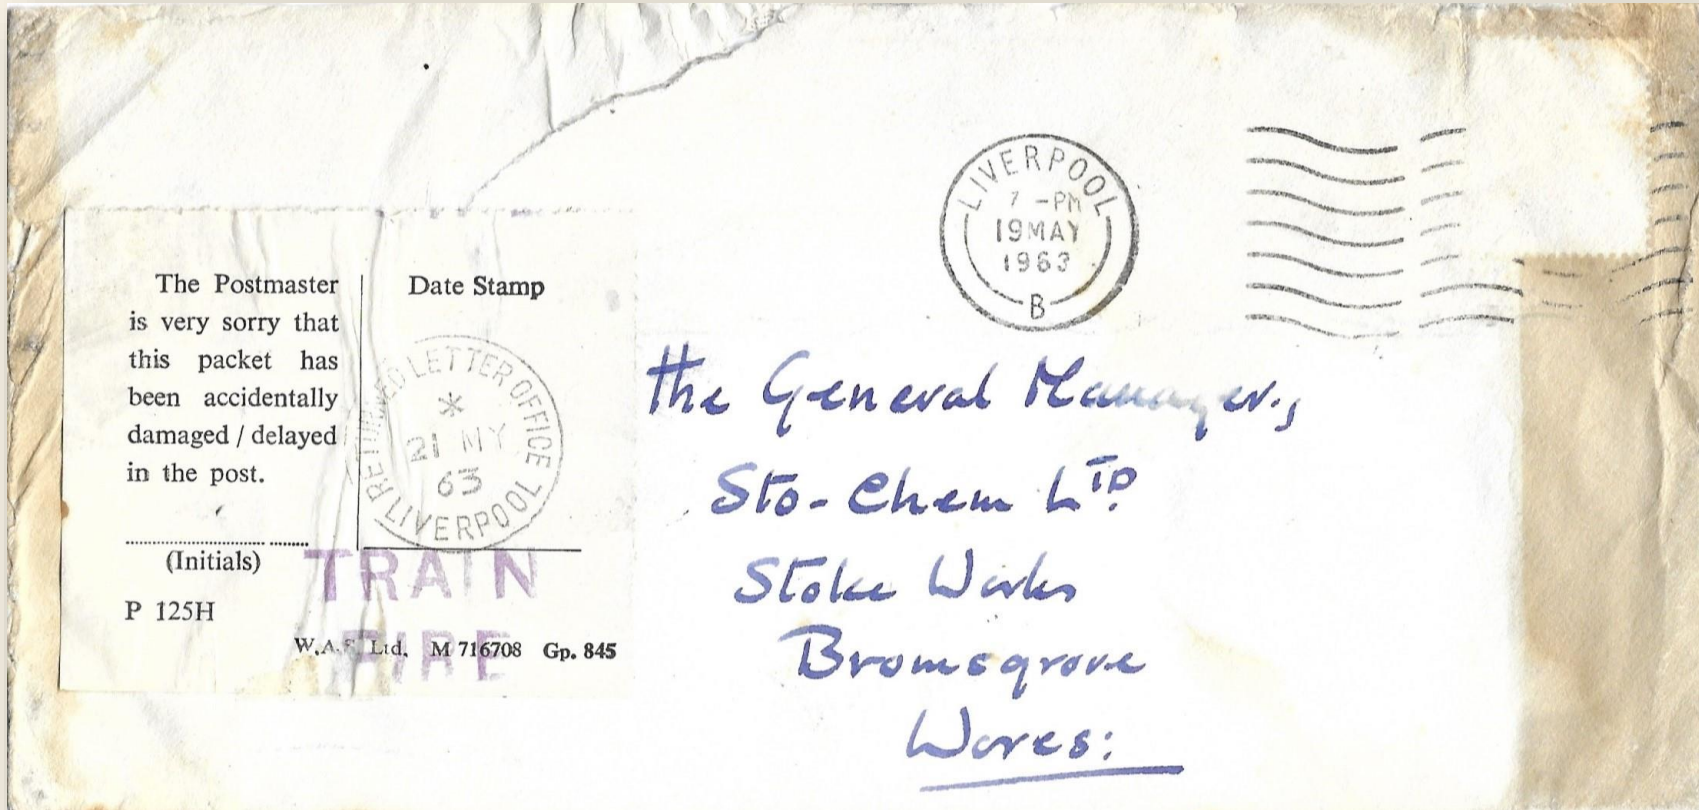 LIVERPOOL
7 - PM
19 MAY
1963
B
The Postmaster
is very sorry that
this packet has
been accidentally
damaged / delayed
in the post.
(Initials)
P 125H
Date Stamp
RETURNED LETTER OFFICE
*
21 MY
63
LIVERPOOL
TRAIN
FIRE
W.A.S. Ltd. M 716708 Gp. 845
the General Manager,
Sto-Chem LTD.
Stoke Works
Bromsgrove
Worcs: